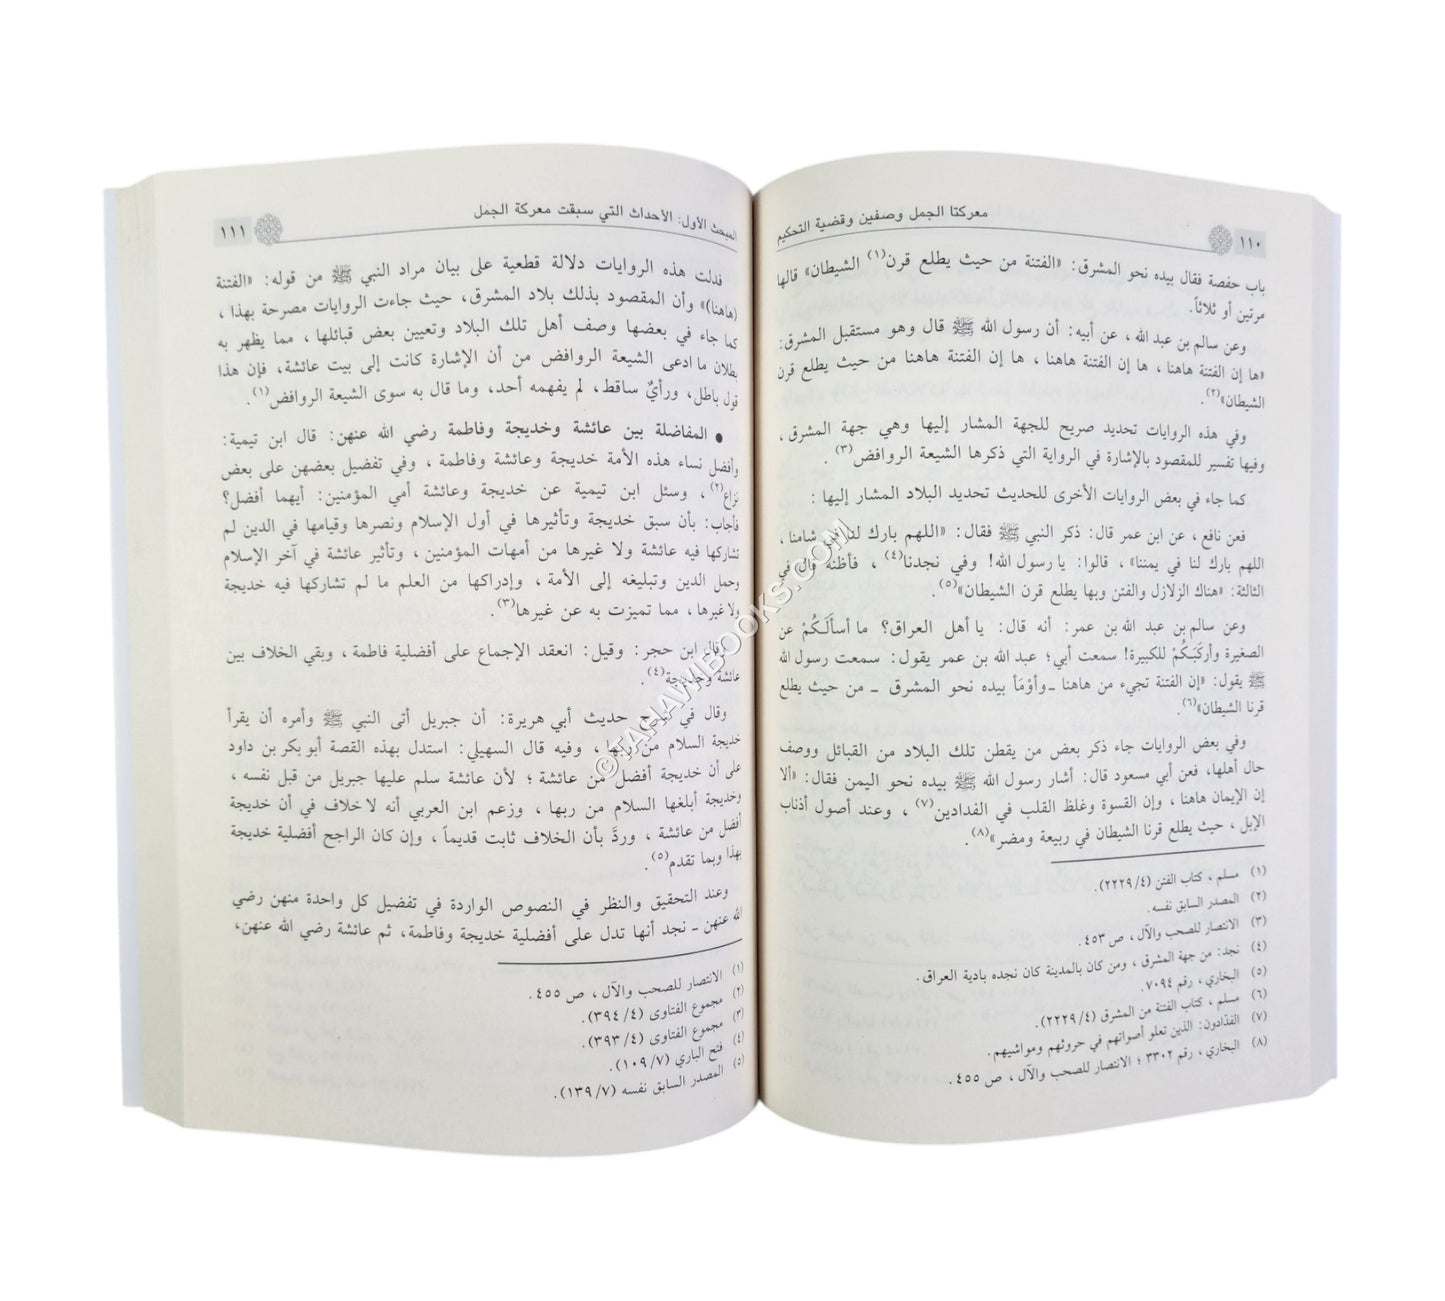 ١١٠
معركتا الجمل وصفين وقضية التحكيم
باب حفصة فقال بيده نحو المشرق: «الفتنة من حيث يطلع قرن(١) الشيطان» قالها
مرتين أو ثلاثاً.
وعن سالم بن عبد الله ، عن أبيه: أن رسول الله ﷺ قال وهو مستقبل المشرق:
«ها إن الفتنة هاهنا ، ها إن الفتنة هاهنا ، ها إن الفتنة هاهنا من حيث يطلع قرن
الشيطان»(٢).
وفي هذه الروايات تحديد صريح للجهة المشار إليها وهي جهة المشرق ،
وفيها تفسير للمقصود بالإشارة في الرواية التي ذكرها الشيعة الروافض(٣) .
كما جاء في بعض الروايات الأخرى للحديث تحديد البلاد المشار إليها :
فعن نافع ، عن ابن عمر قال: ذكر النبي ﷺ فقال: «اللهم بارك لنا في شامنا ،
اللهم بارك لنا في يمننا» ، قالوا: يا رسول الله! وفي نجدنا(٤) ، فأظنه قال في
الثالثة: «هناك الزلازل والفتن وبها يطلع قرن الشيطان»(٥).
وعن سالم بن عبد الله بن عمر: أنه قال: يا أهل العراق؟ ما أسألَكُمْ عن
الصغيرة وأركَبَكُمْ للكبيرة! سمعت أبي؛ عبد الله بن عمر يقول: سمعت رسول الله
ﷺ يقول: «إن الفتنة تجيء من هاهنا ـ وأوْمَأ بيده نحو المشرق ـ من حيث يطلع
قرنا الشيطان»(٦).
وفي بعض الروايات جاء ذكر بعض من يقطن تلك البلاد من القبائل ووصف
حال أهلها، فعن أبي مسعود قال: أشار رسول الله ﷺ بيده نحو اليمن فقال: «ألا
إن الإيمان هاهنا ، وإن القسوة وغلظ القلب في الفدادين(٧) ، وعند أصول أذناب
الإبل ، حيث يطلع قرنا الشيطان في ربيعة ومضر»(٨).
(١) مسلم ، كتاب الفتن (٢٢٢٩/٤).
(٢) المصدر السابق نفسه.
(٣) الانتصار للصحب والآل ، ص ٤٥٣.
(٤) نجد: من جهة المشرق ، ومن كان بالمدينة كان نجده بادية العراق.
(٥) البخاري ، رقم ٧٠٩٤.
(٦) مسلم ، كتاب الفتنة من المشرق (٢٢٢٩/٤).
(٧) الفدّادون: الذين تعلو أصواتهم في حروثهم ومواشيهم.
(٨) البخاري ، رقم ٣٣٠٢ ؛ الانتصار للصحب والآل ، ص ٤٥٥.
المبحث الأول: الأحداث التي سبقت معركة الجمل
١١١
فدلت هذه الروايات دلالة قطعية على بيان مراد النبي ﷺ من قوله: «الفتنة
(هاهنا)» وأن المقصود بذلك بلاد المشرق، حيث جاءت الروايات مصرحة بهذا ،
كما جاء في بعضها وصف أهل تلك البلاد وتعيين بعض قبائلها ، مما يظهر به
بطلان ما ادعى الشيعة الروافض من أن الإشارة كانت إلى بيت عائشة، فإن هذا
قول باطل، ورأيٌ ساقط، لم يفهمه أحد، وما قال به سوى الشيعة الروافض(١).
● المفاضلة بين عائشة وخديجة وفاطمة رضي الله عنهن: قال ابن تيمية:
وأفضل نساء هذه الأمة خديجة وعائشة وفاطمة ، وفي تفضيل بعضهن على بعض
نزاع(٢) ، وسئل ابن تيمية عن خديجة وعائشة أمي المؤمنين: أيهما أفضل؟
فأجاب: بأن سبق خديجة وتأثيرها في أول الإسلام ونصرها وقيامها في الدين لم
تشاركها فيه عائشة ولا غيرها من أمهات المؤمنين ، وتأثير عائشة في آخر الإسلام
وحمل الدين وتبليغه إلى الأمة ، وإدراكها من العلم ما لم تشاركها فيه خديجة
ولا غيرها ، مما تميزت به عن غيرها(٣).
وقال ابن حجر: وقيل: انعقد الإجماع على أفضلية فاطمة ، وبقي الخلاف بين
عائشة وخديجة(٤).
وقال في حديث أبي هريرة: أن جبريل أتى النبي ﷺ وأمره أن يقرأ
خديجة السلام من ربها ، وفيه قال السهيلي: استدل بهذه القصة أبو بكر بن داود
على أن خديجة أفضل من عائشة ؛ لأن عائشة سلم عليها جبريل من قبل نفسه ،
وخديجة أبلغها السلام من ربها ، وزعم ابن العربي أنه لا خلاف في أن خديجة
أفضل من عائشة ، وردَّ بأن الخلاف ثابت قديماً ، وإن كان الراجح أفضلية خديجة
بهذا وبما تقدم(٥).
وعند التحقيق والنظر في النصوص الواردة في تفضيل كل واحدة منهن رضي
الله عنهن ـ نجد أنها تدل على أفضلية خديجة وفاطمة، ثم عائشة رضي الله عنهن،
(١) الانتصار للصحب والآل ، ص ٤٥٥.
(٢) مجموع الفتاوى (٣٩٤/٤).
(٣) مجموع الفتاوى (٣٩٣/٤).
(٤) فتح الباري (١٠٩/٧).
(٥) المصدر السابق نفسه (١٣٩/٧).
©TAHAWIBOOKS.COM